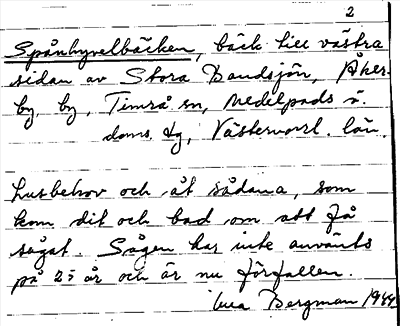 2
Spånhyvelbäcken, bäck till västra
sidan av Stora Bandsjön, Åker-
by by, Timrå sn, Medelpads v.
doms. dg, Västernorrl. län.
husbehov och åt sådana, som
kom dit och bad om att få
sågat. Sågen har inte använts
på 25 år och är nu förfallen.
Bergman 1944